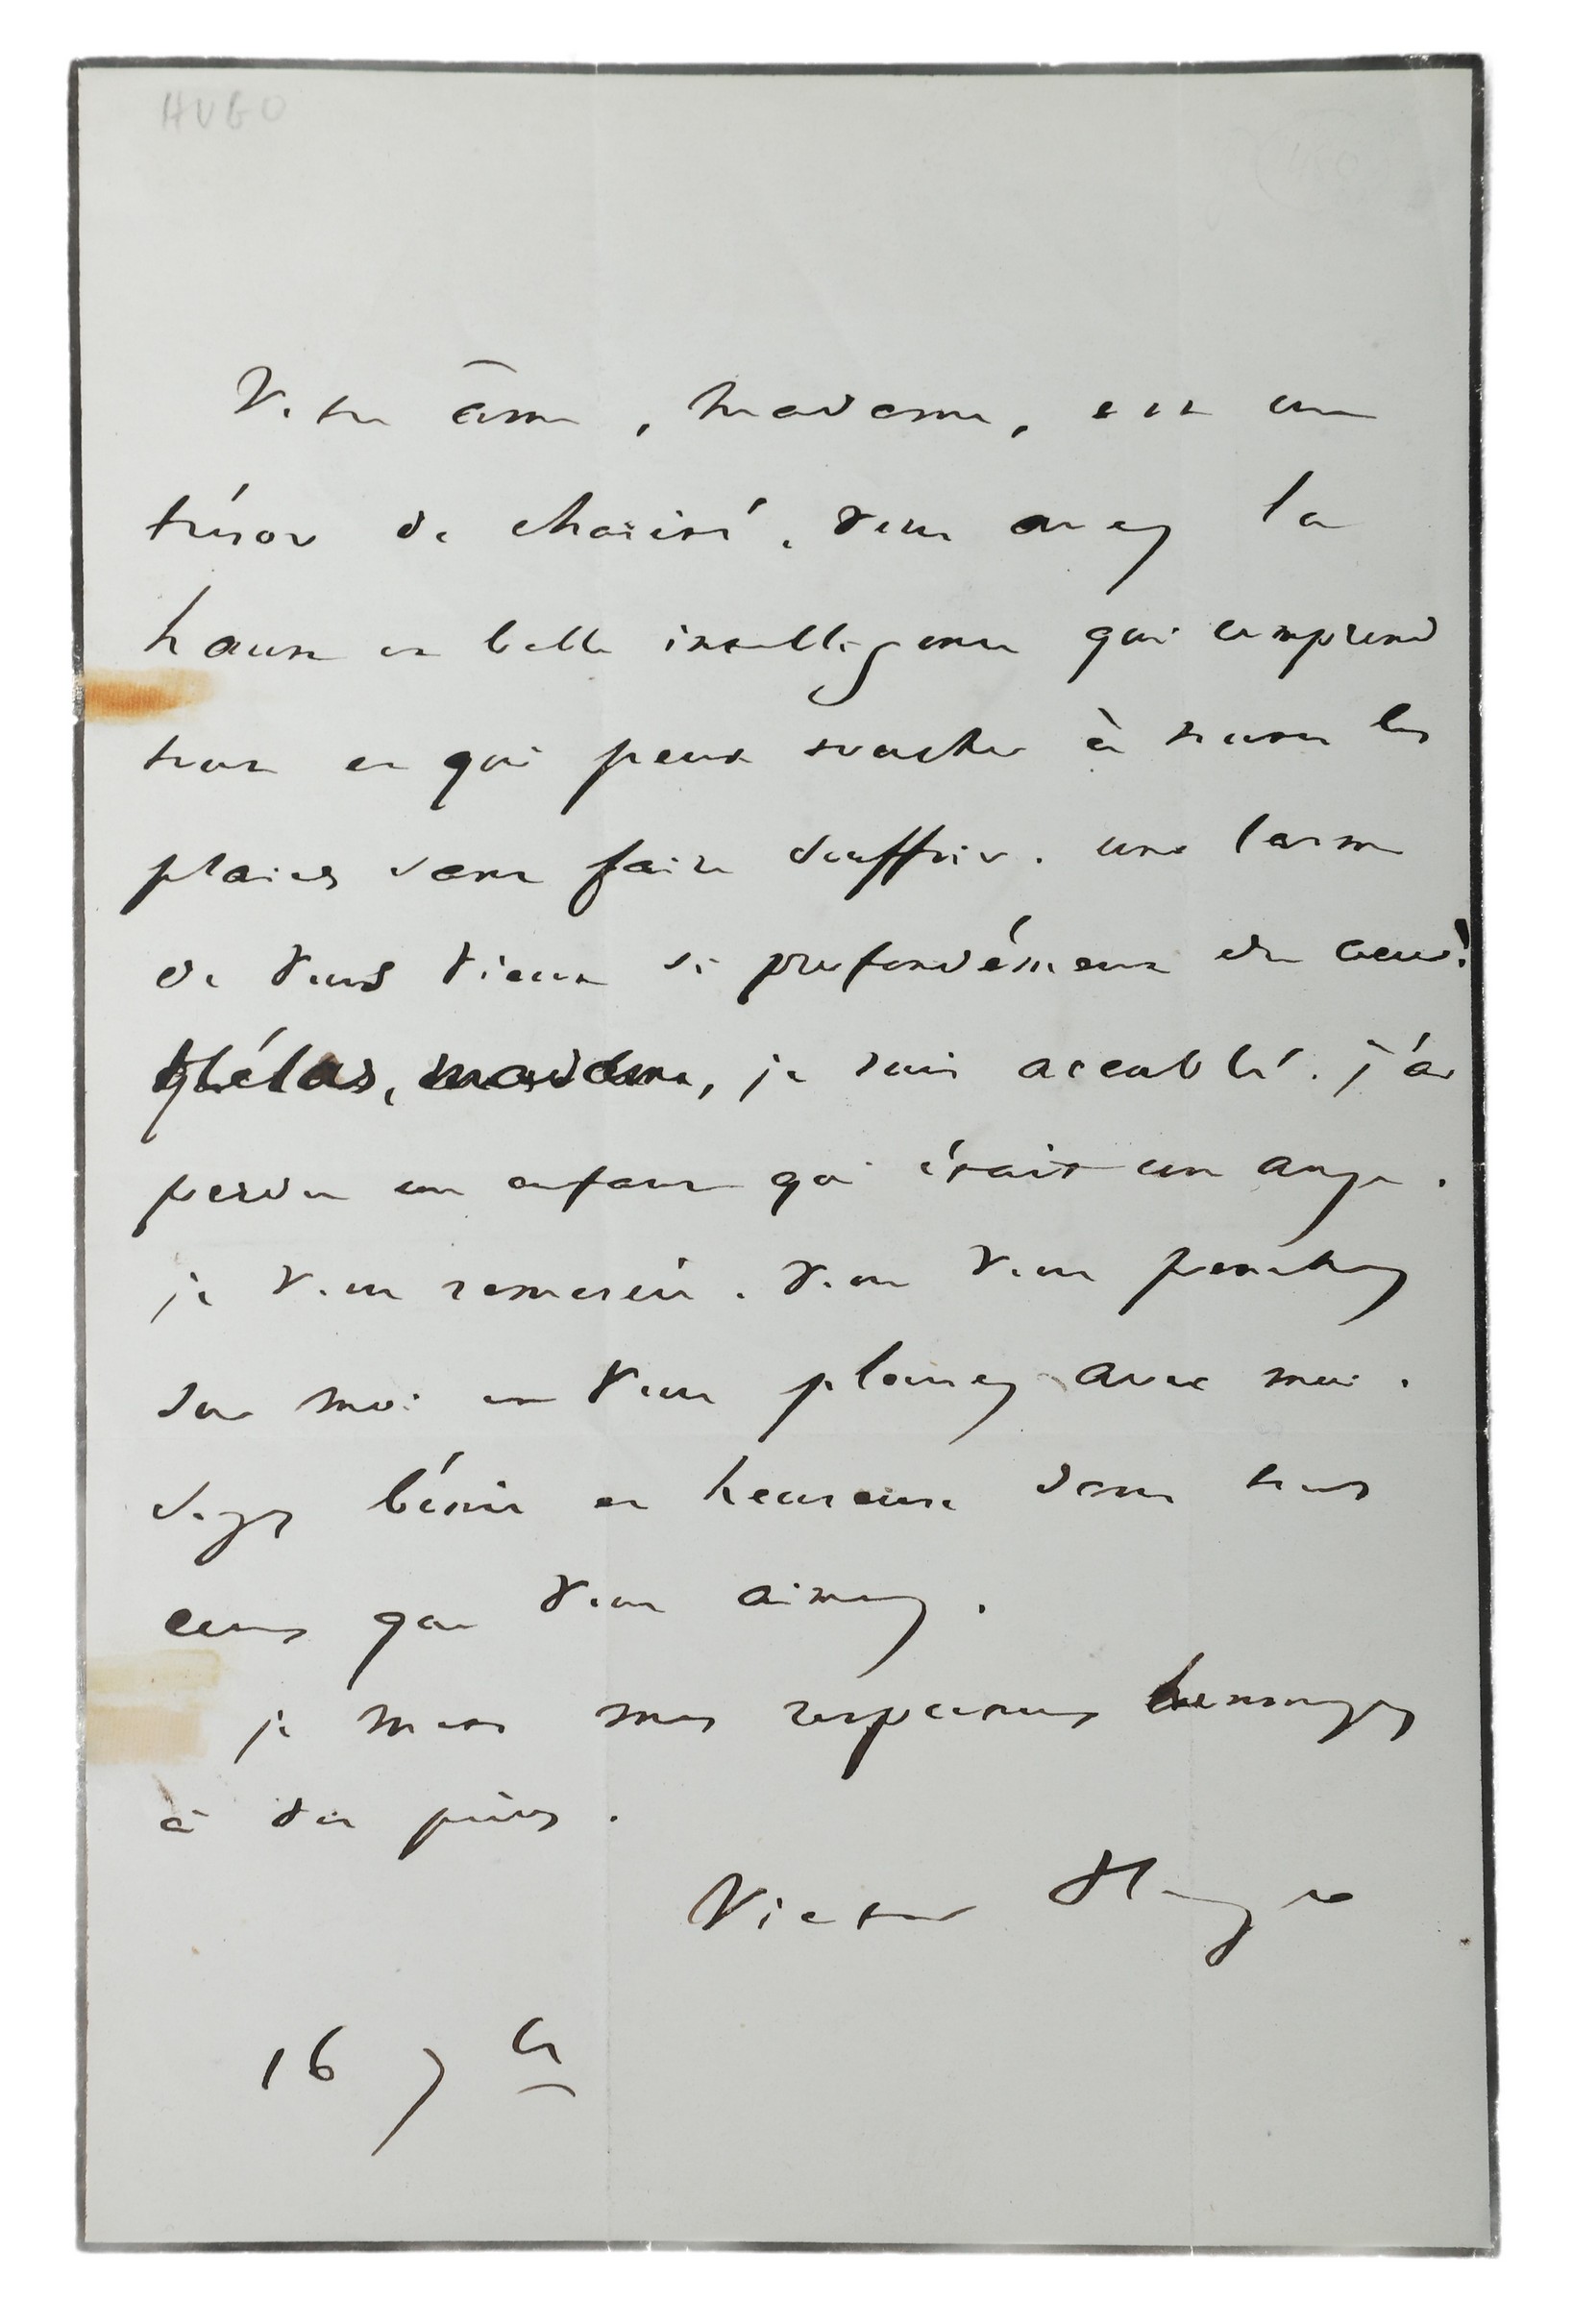 HUGO
Votre âme, madame, est un
trésor de charité. vous avez la
haute et belle intelligence qui comprend
tout et qui peut toucher à toutes les
plaies sans faire souffrir. une larme
de vous vient si profondément du cœur!
Hélas, madame, je suis accablé. j'ai
perdu un enfant qui était un ange.
je vous remercie. vous vous penchez
sur moi et vous pleurez avec moi.
soyez bénie et heureuse dans tous
ceux que vous aimez.
je mets mes respectueux hommages
à vos pieds.
Victor Hugo
16 7bre